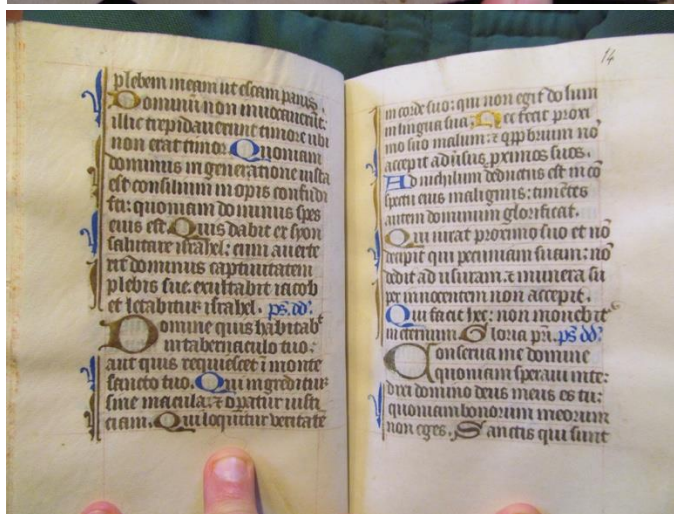 plebem meam ut escam panis.
Dominū non invocaverūt:
illic trepidaverunt timore ubi
non erat timor Quoniam
dominus in generatione iusta
est consilium inopis confudi
sti: quoniam dominus spes
eius est. Quis dabit ex syon
salutare israhel: cum averte
rit dominus captivitatem
plebis sue: exultabit iacob
et letabitur israhel. ps. dd:
Domine quis habitab
in tabernaculo tuo:
aut quis requiescet ī monte
sancto tuo. Qui ingreditur
sine macula: et opatur iusti
ciam. Qui loquitur veritatē
14
in corde suo: qui non egit dolum
in lingua sua: Nec fecit proxi
mo suo malum: et opprobrium nō
accepit adūsus proximos suos.
Ad nichilum deductus est in cō
spectu eius malignus: timētes
autem dominum glorificat.
Qui iurat proximo suo et nō
decipit qui pecuniam suam: nō
dedit ad usuram. et munera su
per innocentem non accepit.
Qui facit hec: non movebit
in eternum. Gloria pri. ps dd:
Conserva me domine
quoniam speravi in te:
dixi domino deus meus es tu:
quoniam bonorum meorum
non eges. Sanctis qui sunt